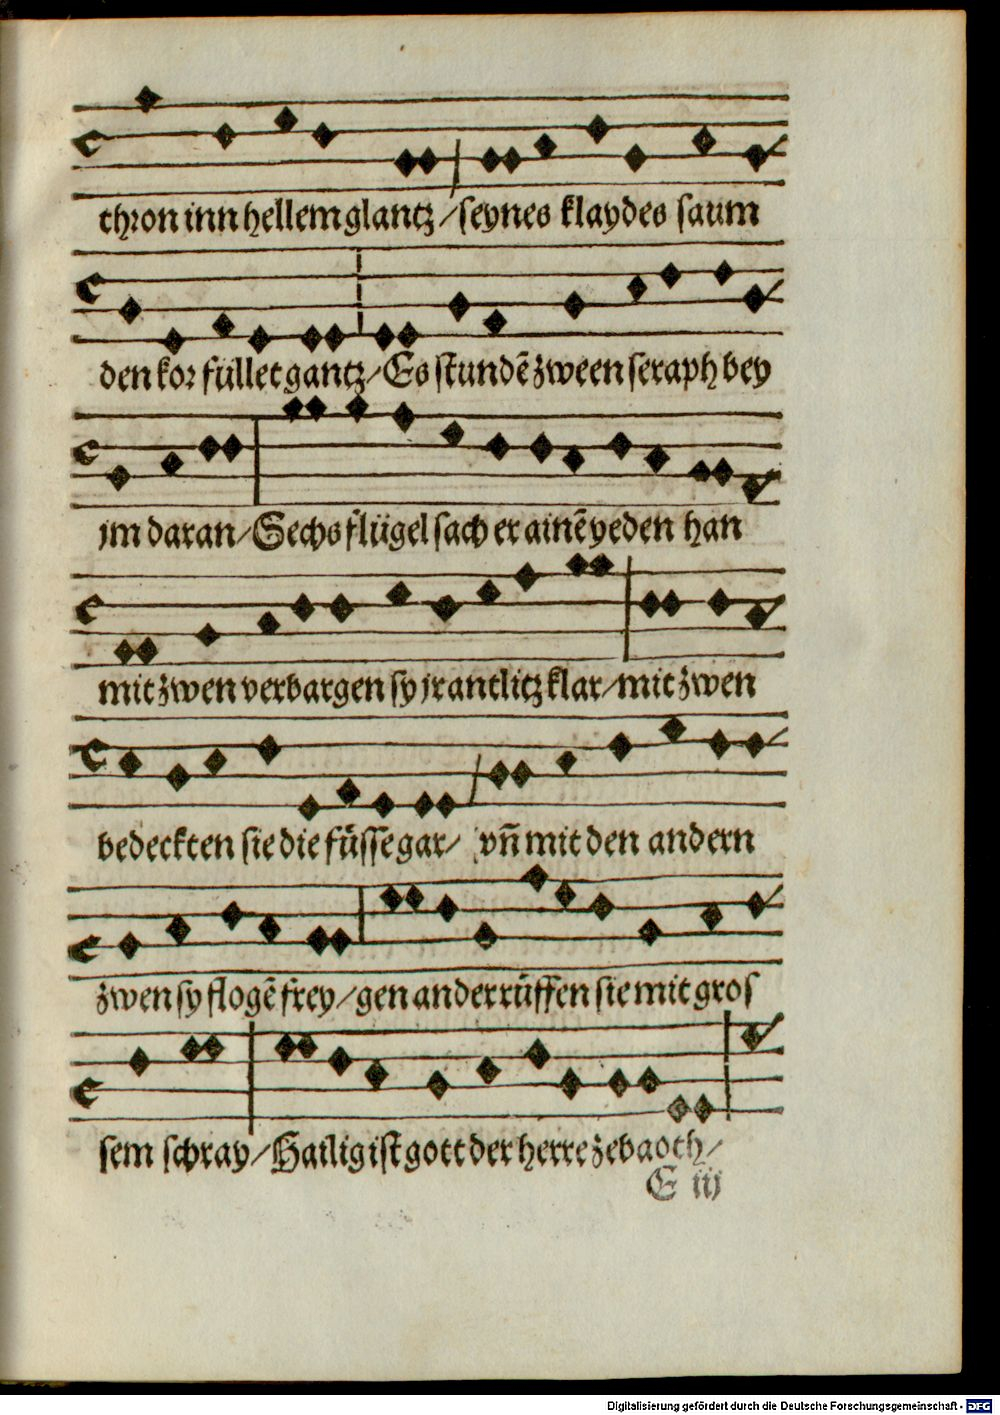 thron inn hellem glantz/seynes klaydes saum
den kor füllet gantz/Es stundē zween seraph bey
jm daran/Sechs flügel sach er ainē yeden han
mit zwen verbargen sy jr antlitz klar/mit zwen
bedeckten sie die füsse gar/ vn̄ mit den andern
zwen sy flogē frey/gen ander rüffen sie mit gros
sem schray/Hailig ist gott der herre zebaoth/
E iij
Digitalisierung gefördert durch die Deutsche Forschungsgemeinschaft - DFG